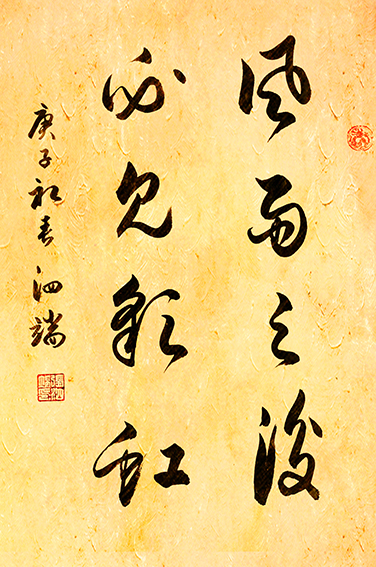 风雨之後
必见彩虹
庚子初春 泗端